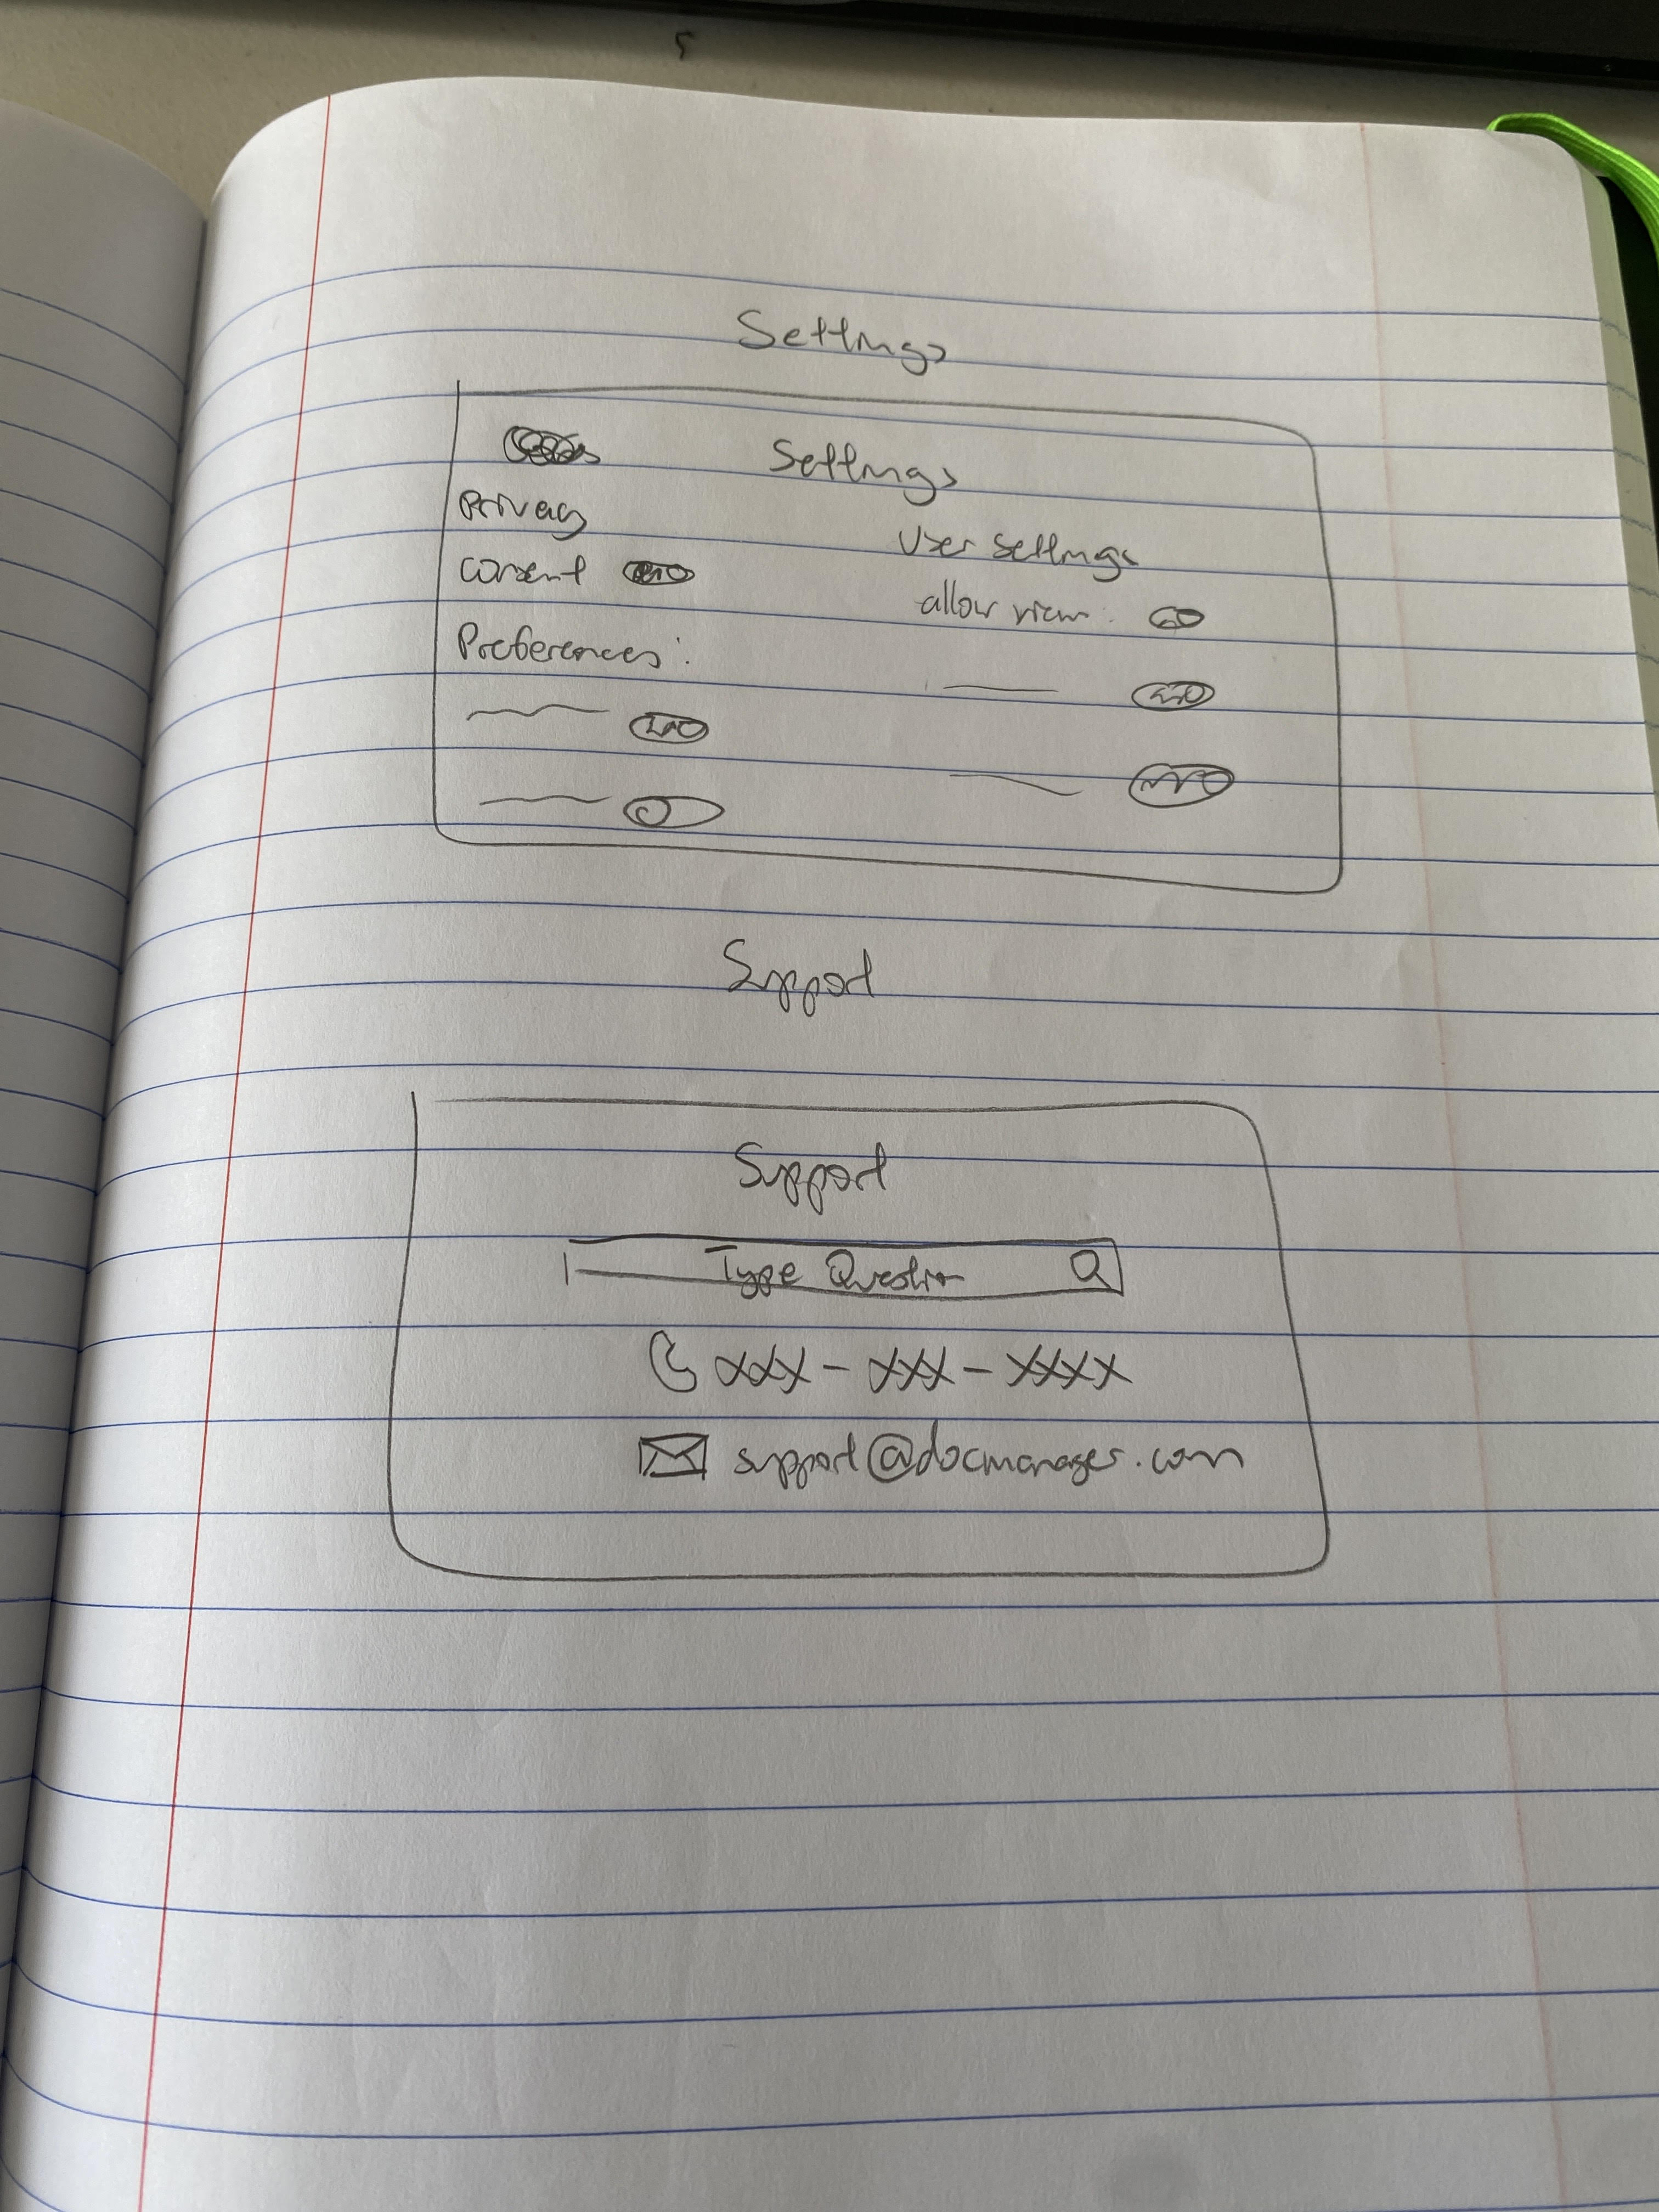 Settings
Settings
Privacy
Consent
Preferences:
User Settings
allow view:
Support
Support
Type Question
xxx - xxx - xxxx
support@docmanager.com